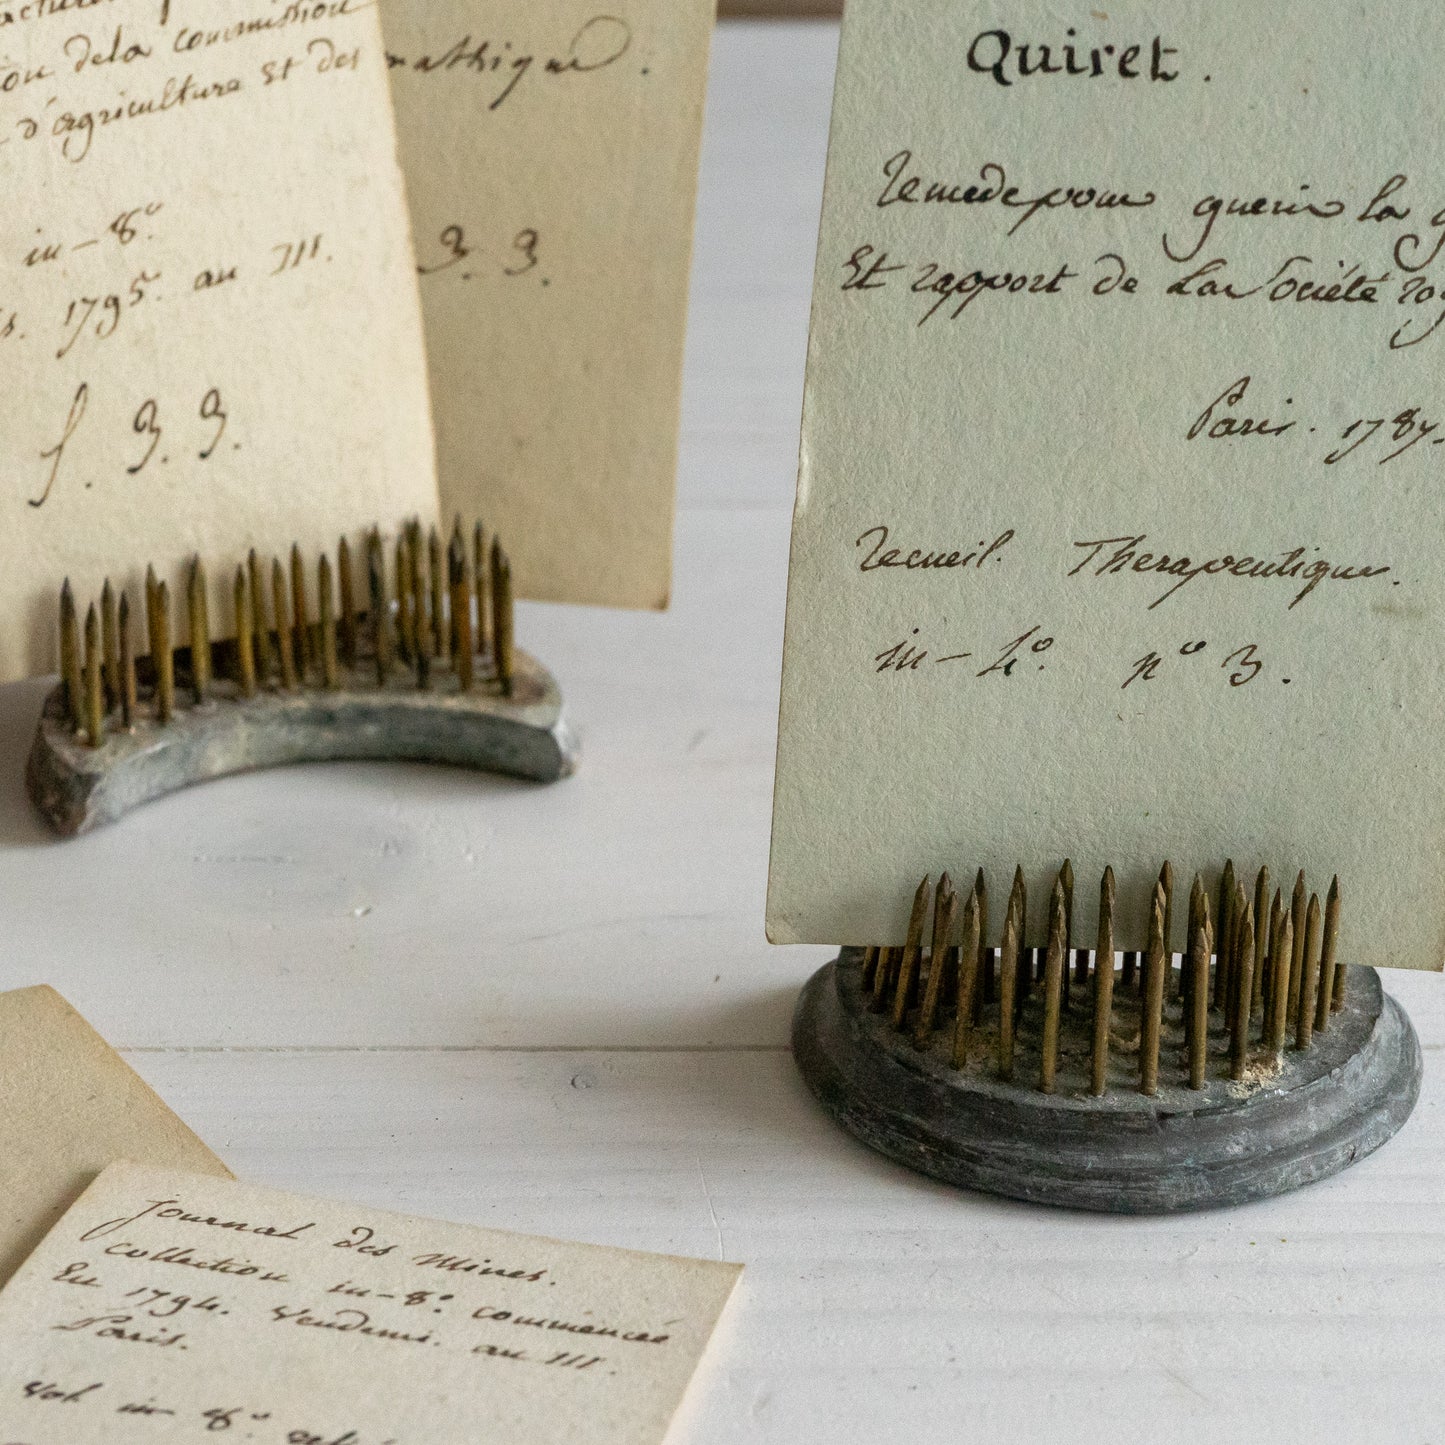 de la commission
d'agriculture et des
in-8°.
1795. an III.
f. 3. 3.
3. 3.
Quiret.
Remede pour guerir la
Et rapport de la Société
Paris. 1787.
Recueil. Therapeutique.
in-4°. n° 3.
Journal des Mines.
Collection in-8°. commencée
En 1794. Vendemi. an III.
Paris.
Vol in 8°.